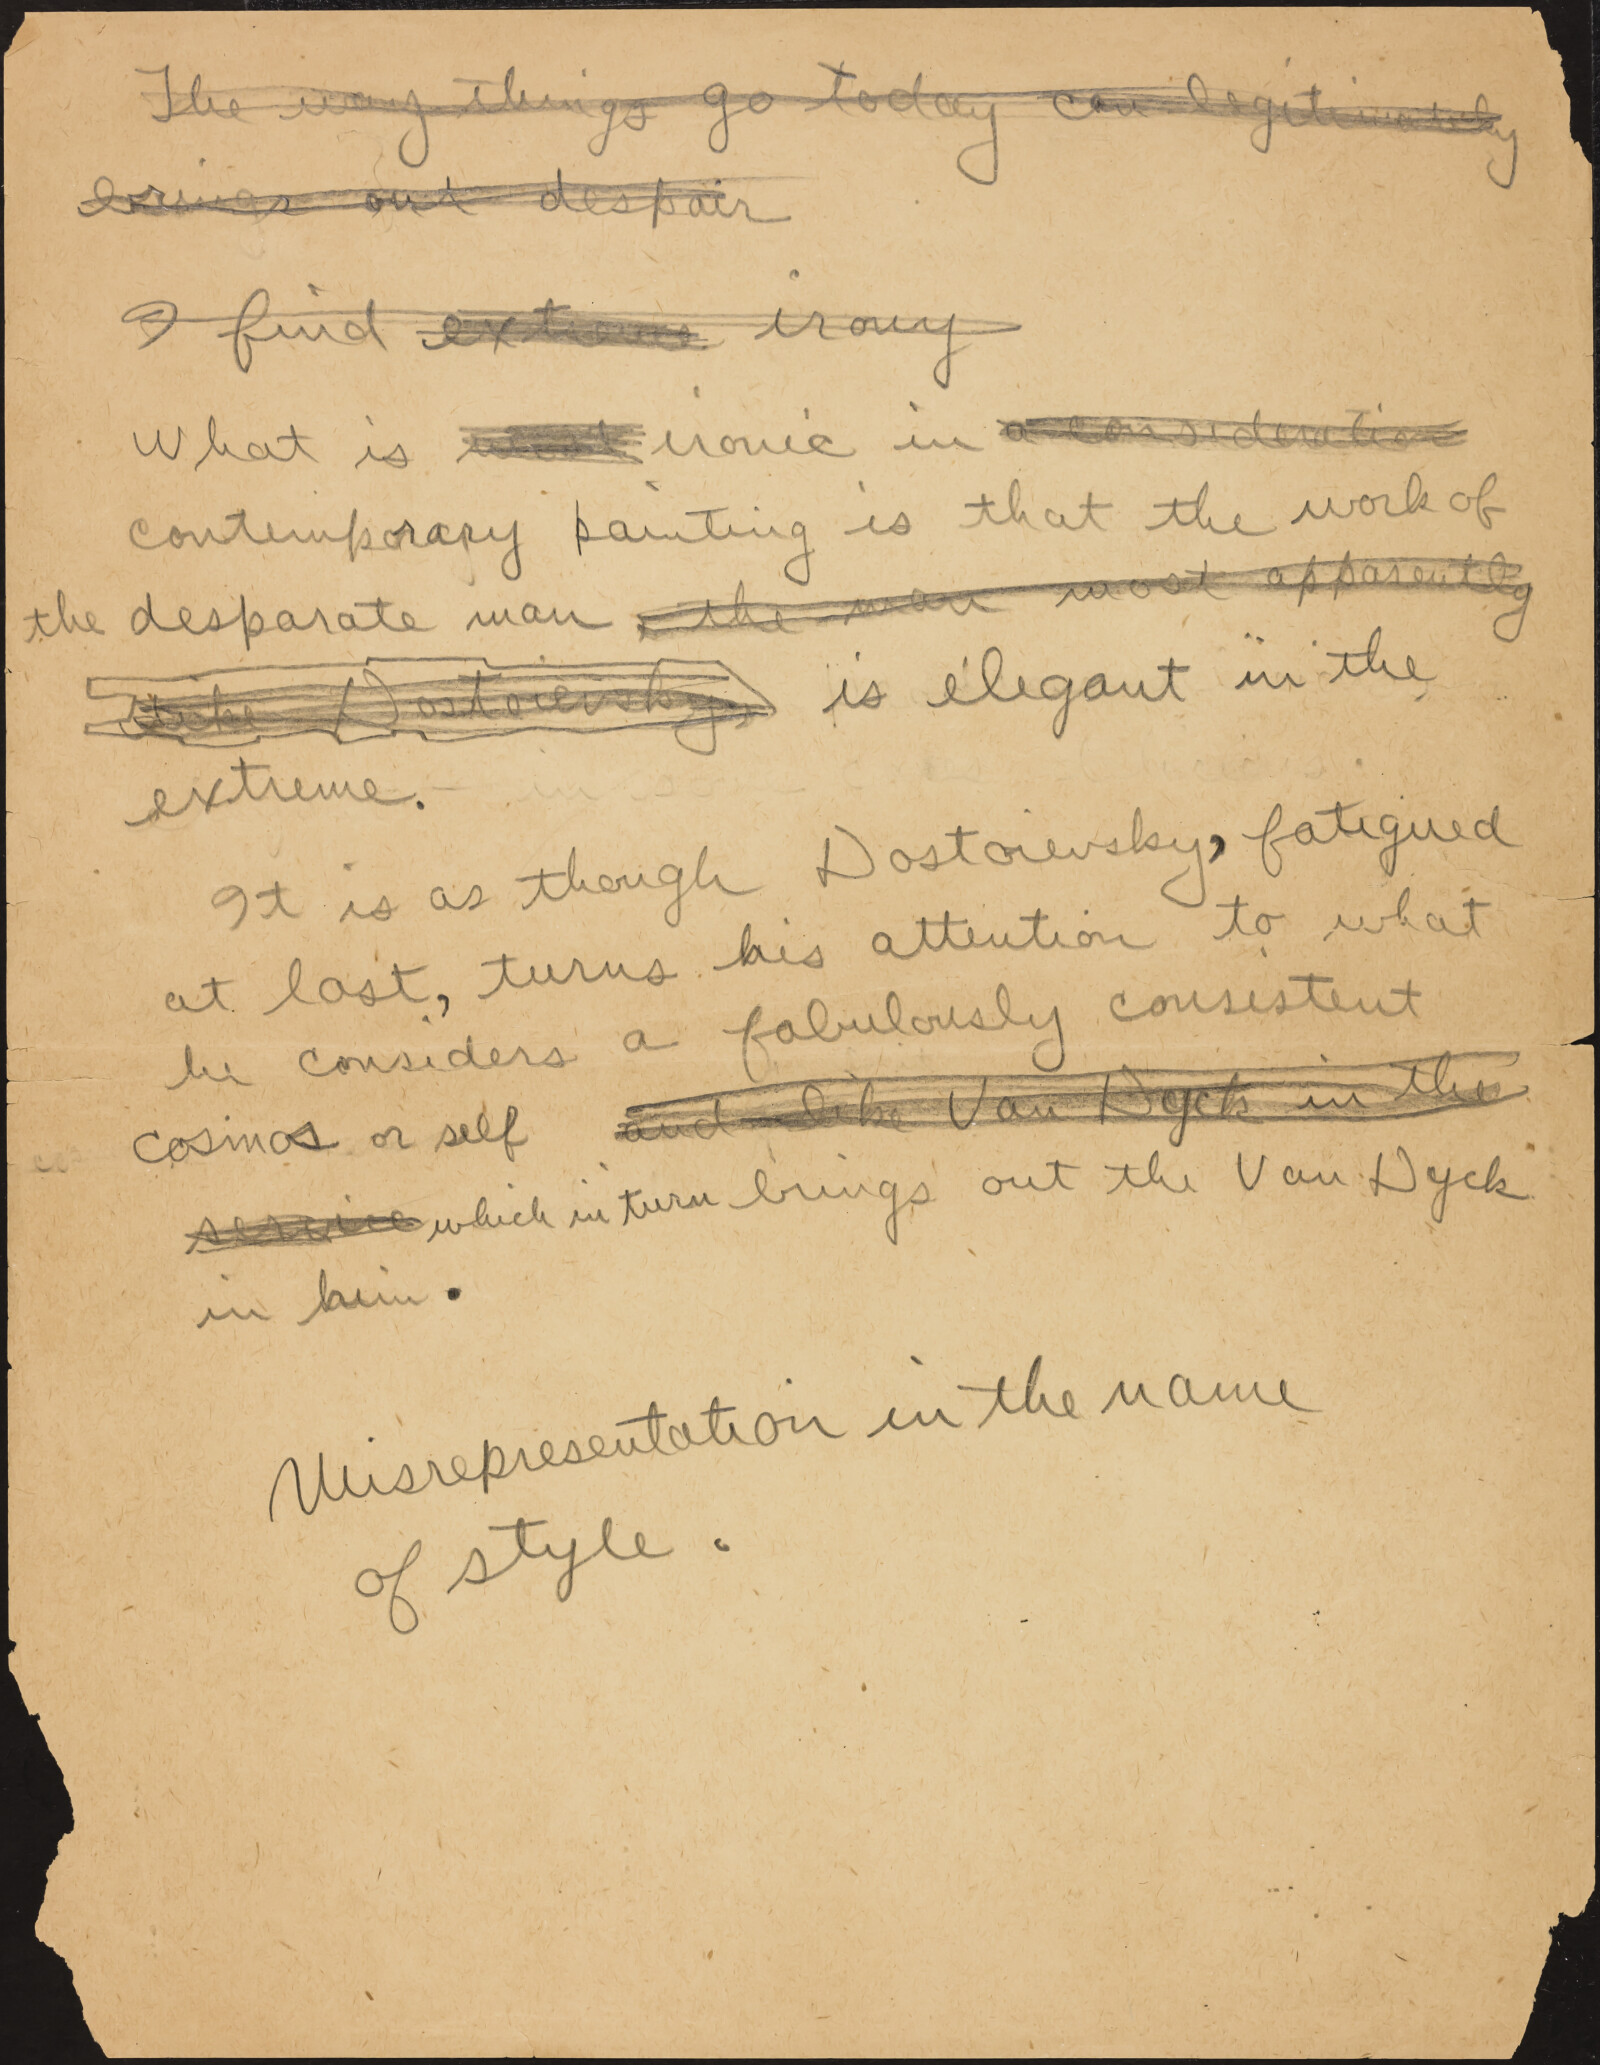 The way things go today can legitimately
brings out despair
I find extreme irony
What is most ironic in a consideration
contemporary painting is that the work of
the desparate man, the man most apparently
like Dostoievsky, is elegant in the
extreme.
It is as though Dostoievsky, fatigued
at last, turns his attention to what
he considers a fabulously consistent
cosmos or self and like Van Dyck in the
service which in turn brings out the Van Dyck
in him.
Misrepresentation in the name
of style.